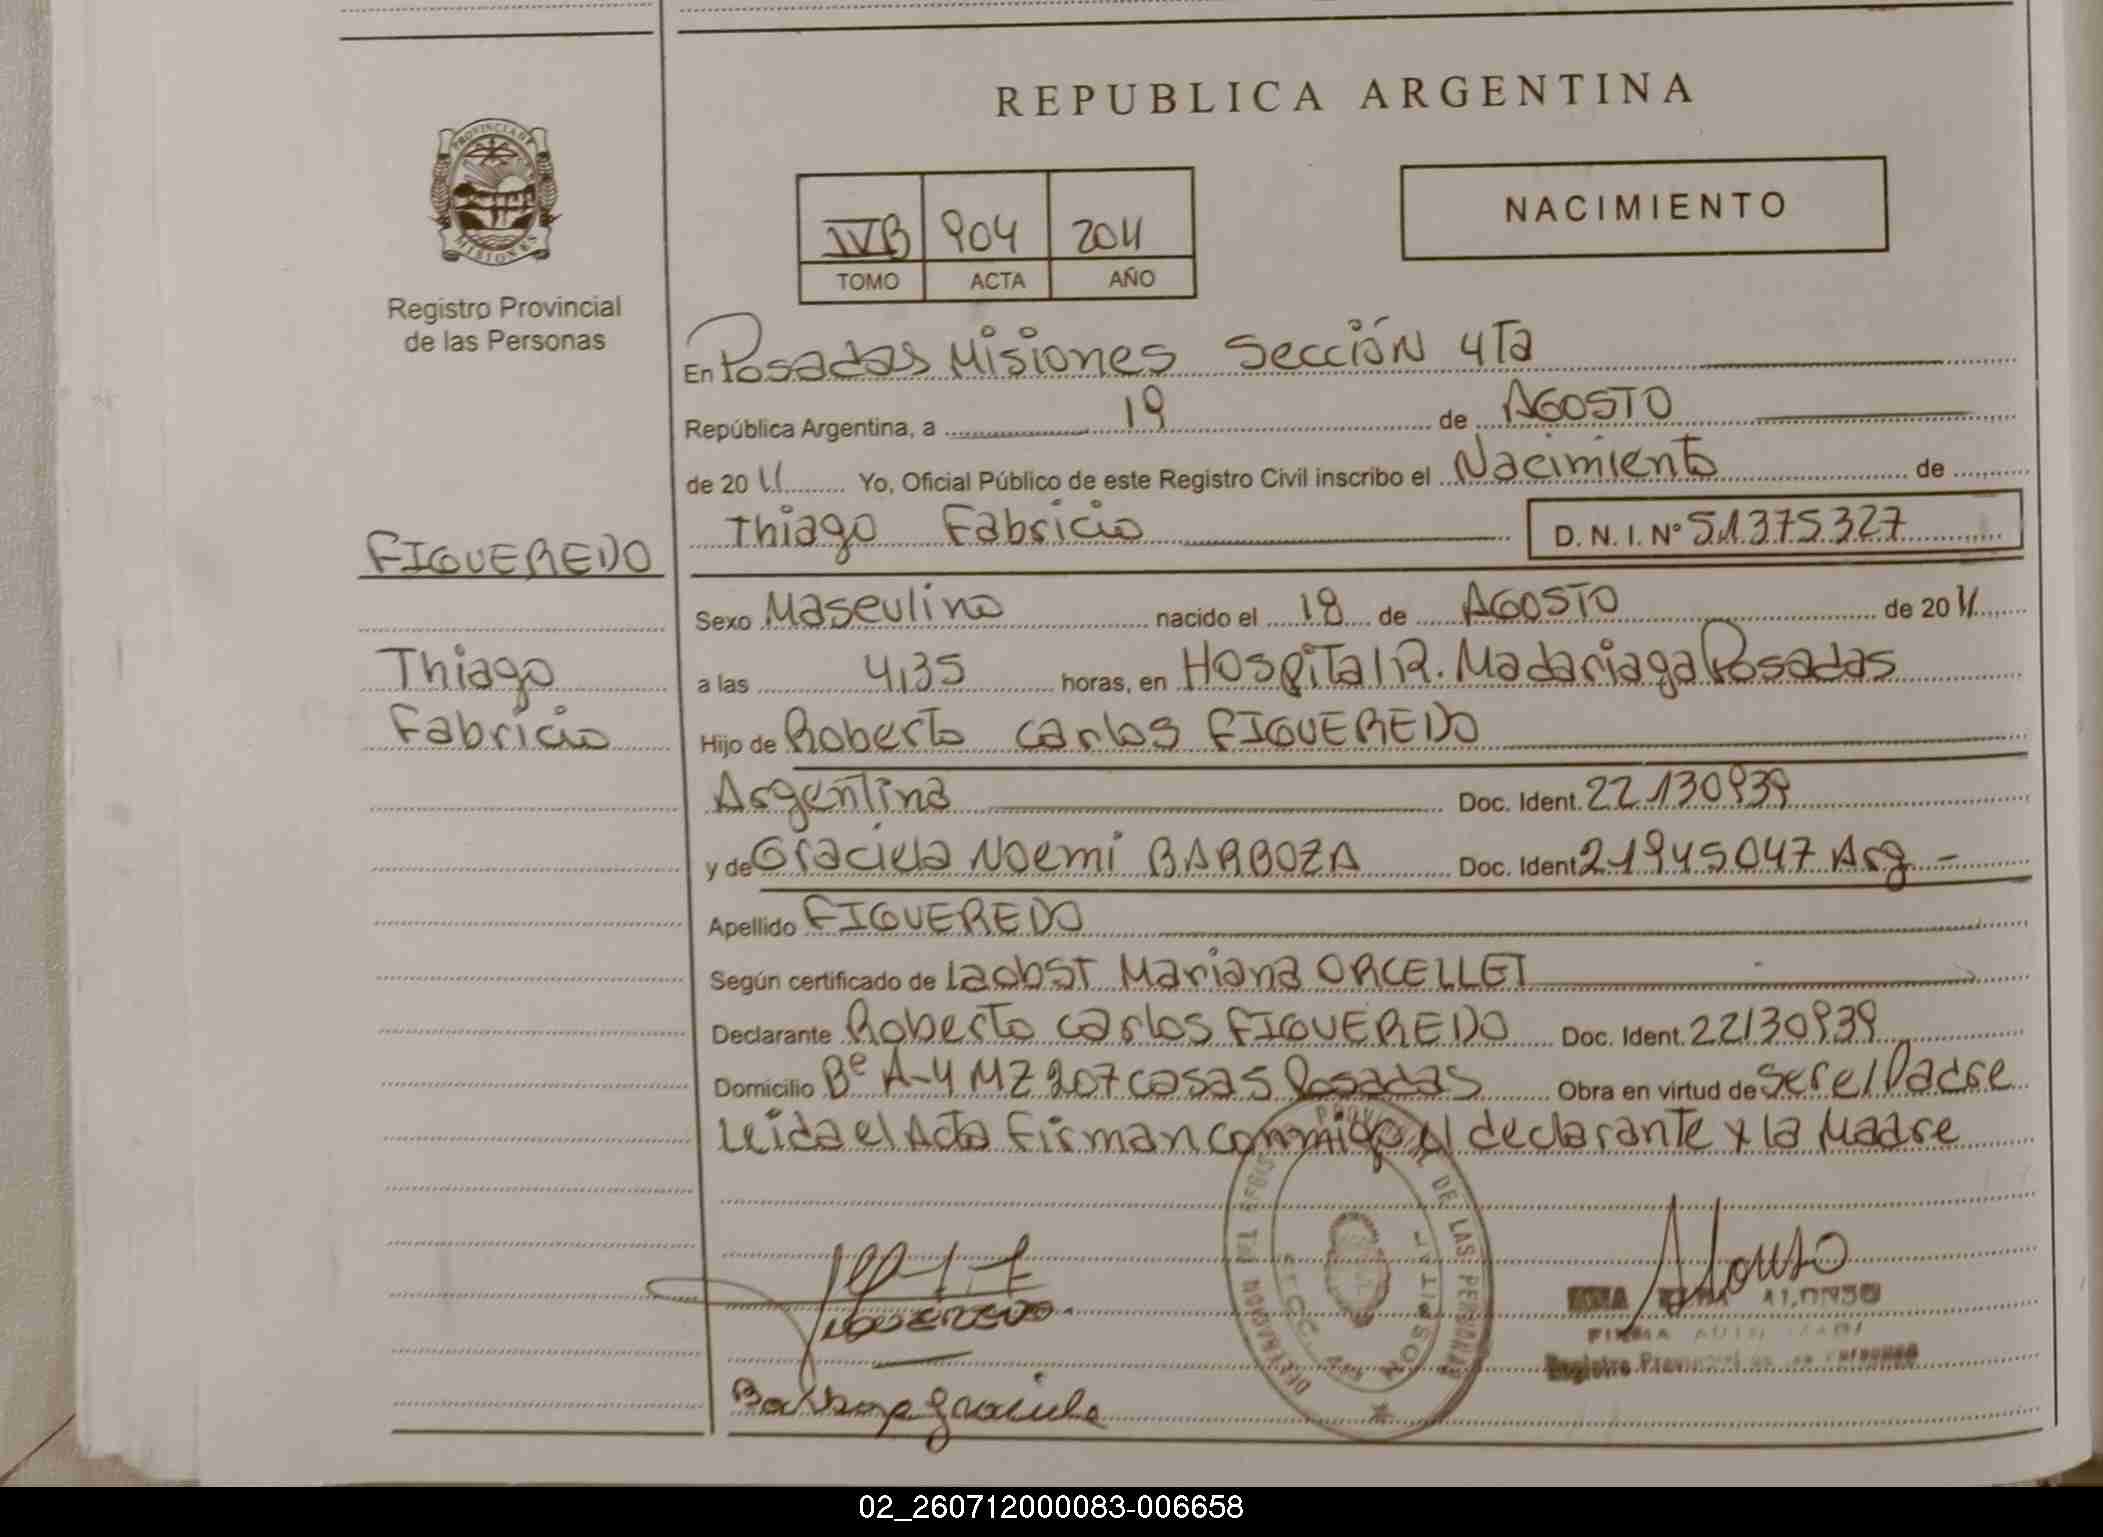 REPUBLICA ARGENTINA
PROVINCIA DE
MISIONES
Registro Provincial
de las Personas
IVB 904 2011
TOMO ACTA AÑO
NACIMIENTO
En Posadas Misiones Sección 4Ta
República Argentina, a 19 de AGOSTO
de 20 11 Yo, Oficial Público de este Registro Civil inscribo el Nacimiento de
Thiago Fabricio D. N. I. Nº 51375327
FIGUEREDO
Thiago
Fabricio
Sexo Masculino nacido el 18 de AGOSTO de 20 11
a las 4,35 horas, en HOSpiTal R. Madariaga Posadas
Hijo de Roberto Carlos FIGUEREDO
Argentina Doc. Ident. 22130939
y de Graciela Noemi BARBOZA Doc. Ident 21945047 Arg -
Apellido FIGUEREDO
Según certificado de LaobsT Mariana ORCELLET
Declarante Roberto Carlos FIGUEREDO Doc. Ident. 22130939
Domicilio Bº A-4 MZ 207 casa 5 Posadas Obra en virtud de ser el Padre
Leida el Acta Firman conmigo el declarante y la Madre
FIGUEREDO
Barboza Graciela
DE LAS PERSONAS
Alonso
ALONSO
FIRMA
Registro Provincial de las Personas
02_260712000083-006658